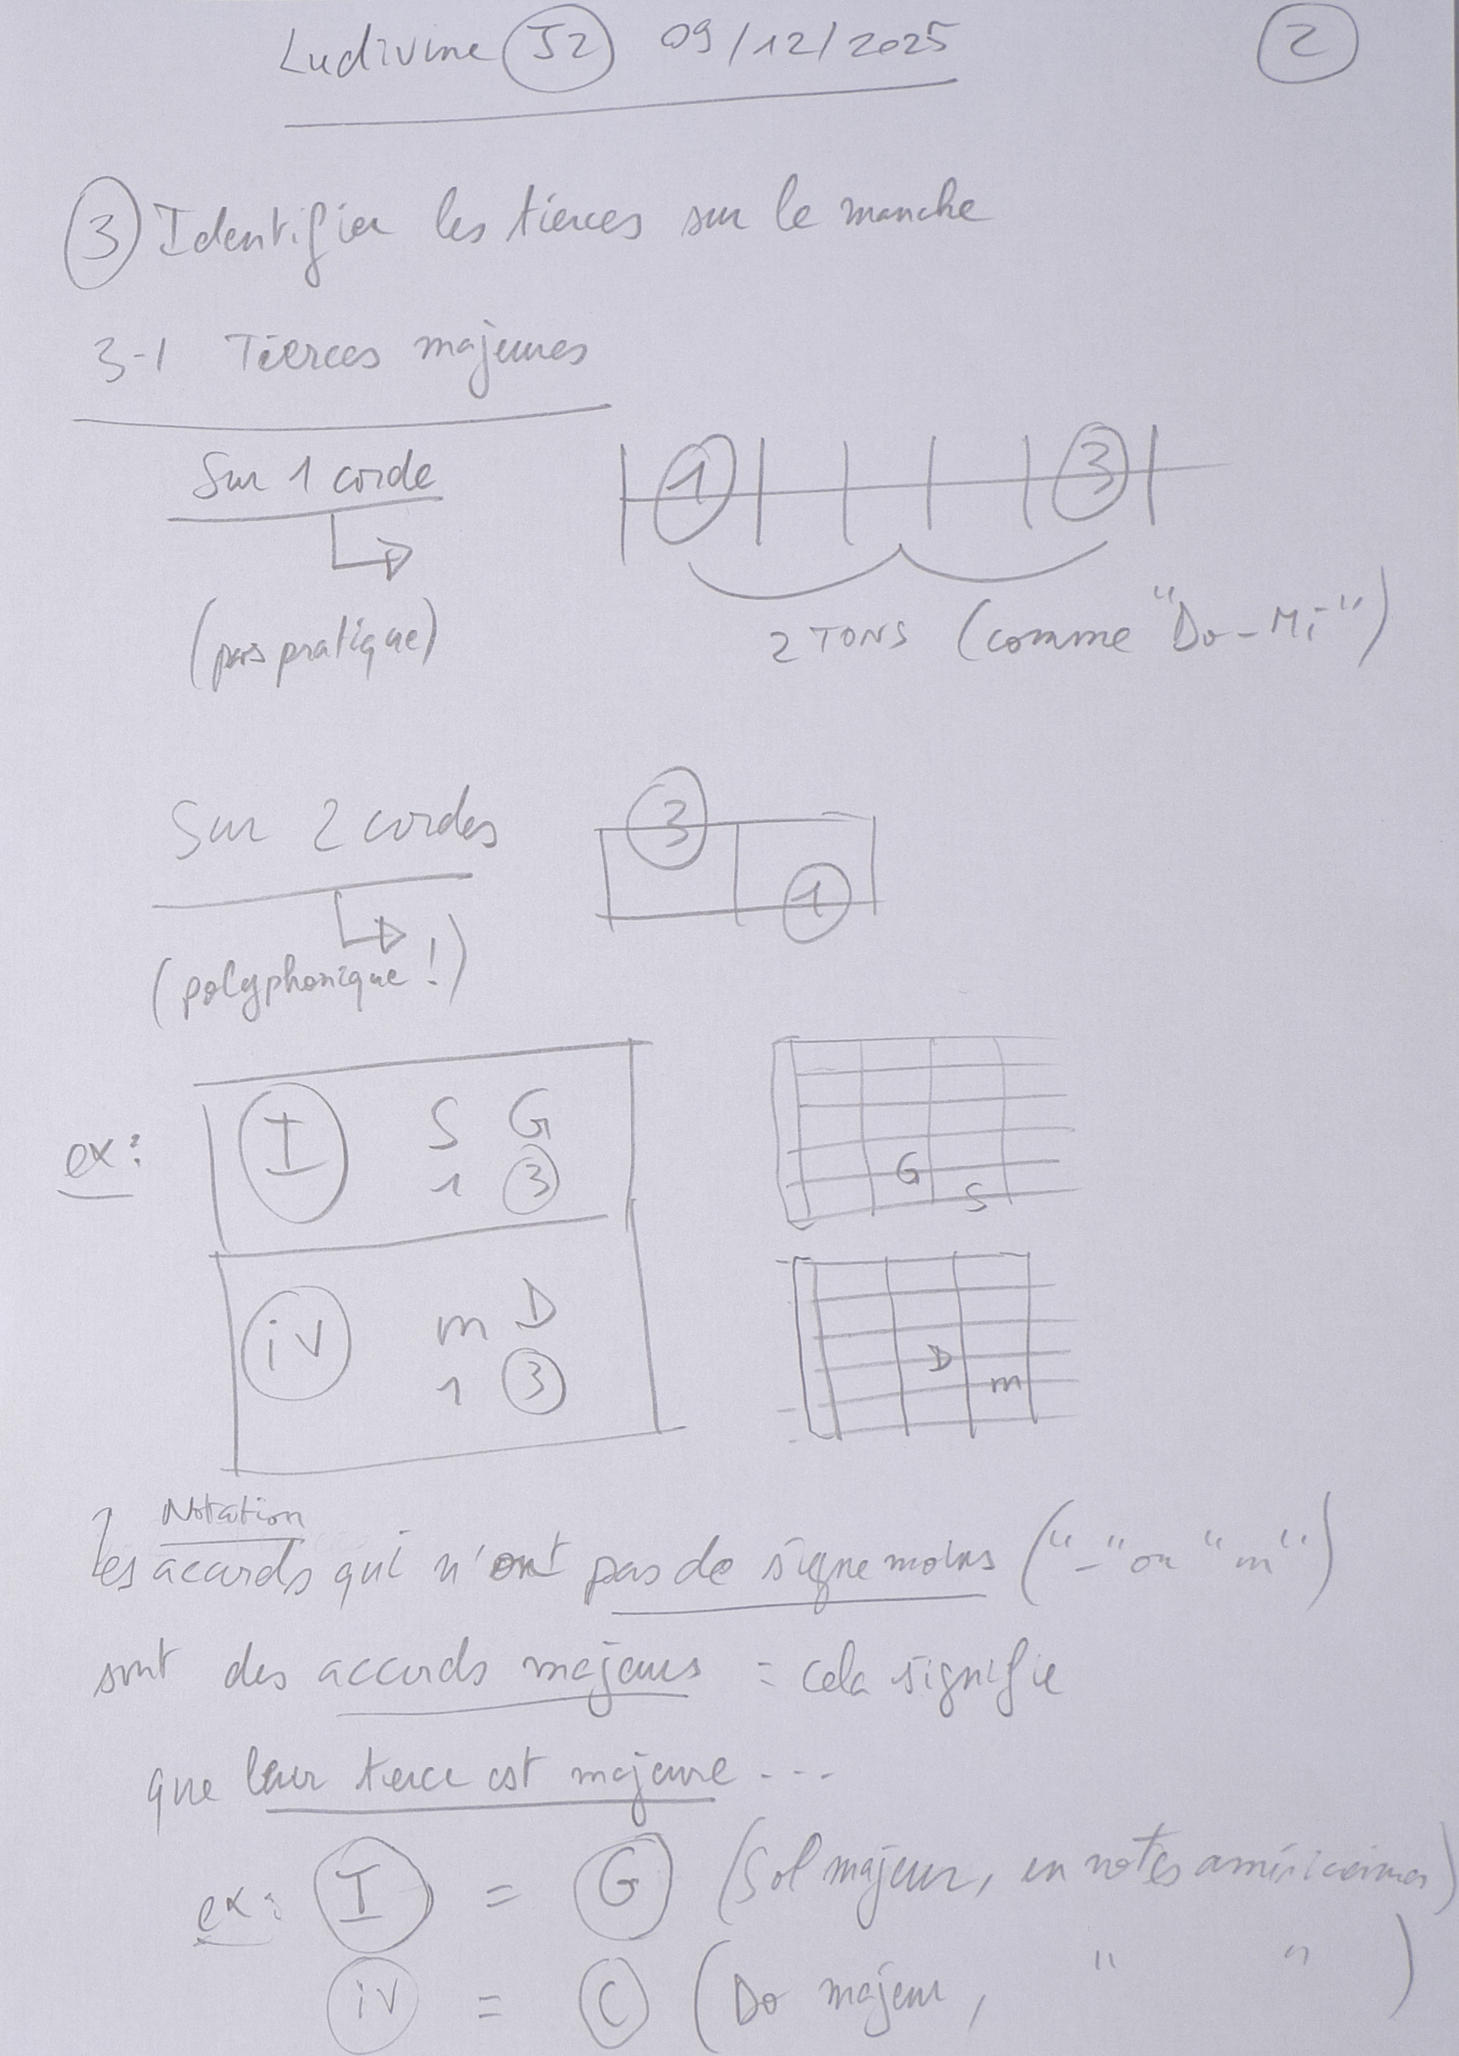 Ludivine J2 09/12/2025 2
3 Identifier les tierces sur le manche
3-1 Tierces majeures
Sur 1 corde
1 3
(pas pratique)
2 TONS (comme "Do-Mi")
Sur 2 cordes
3
1
(polyphonique !)
ex:
I S G
1 3
G
S
iv m D
1 3
D
m
Notation
les accords qui n'ont pas de signe moins ("-" ou "m")
sont des accords majeurs = cela signifie
que leur tierce est majeure ...
ex: I = G (Sol majeur, en notes américaines)
iv = C (Do majeur, " ")